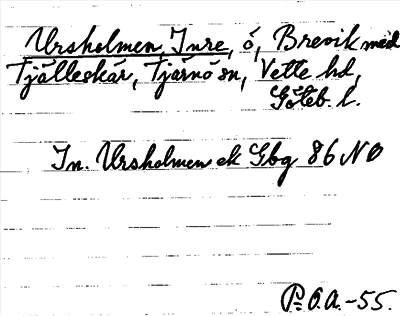 Ursholmen, Inre, ö, Brevik med
Tjälleskär, Tjärnö sn, Vette hd,
Göteb. l.
In. Ursholmen ek Gbg 86 NO
P.O.A.-55.